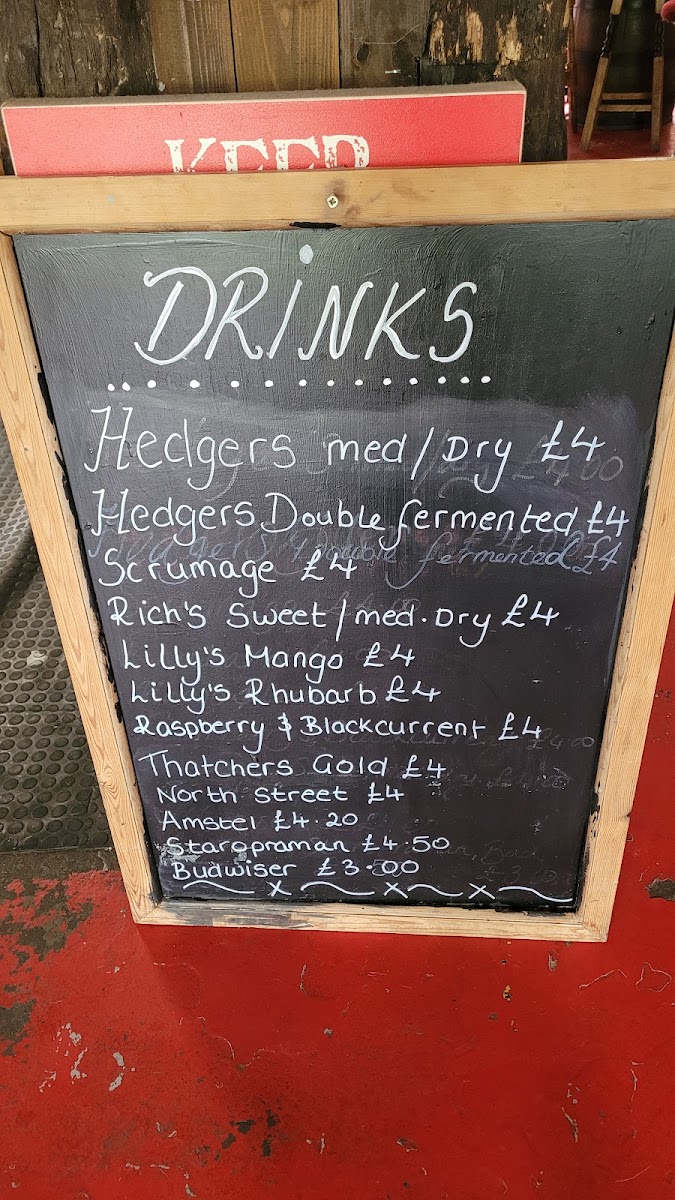 KEEP
DRINKS
Hedgers med/Dry £4
Hedgers Double fermented £4
Double fermented £4
Scrumage £4
Rich's Sweet/med.Dry £4
Lilly's Mango £4
Lilly's Rhubarb £4
Raspberry & Blackcurrent £4
Thatchers Gold £4
North Street £4
Amstel £4.20
Staropraman £4.50
Budwiser £3.00